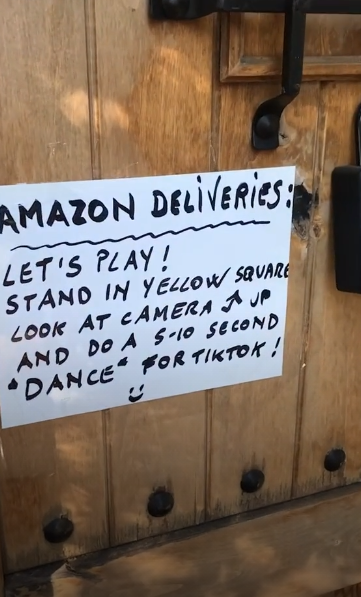 AMAZON DELiVERiES:
LET'S PLAY!
STAND IN YELLOW SQUARE
LOOK AT CAMERA ↗ UP
AND DO A 5-10 SECOND
"DANCE" FOR TIKTOK!